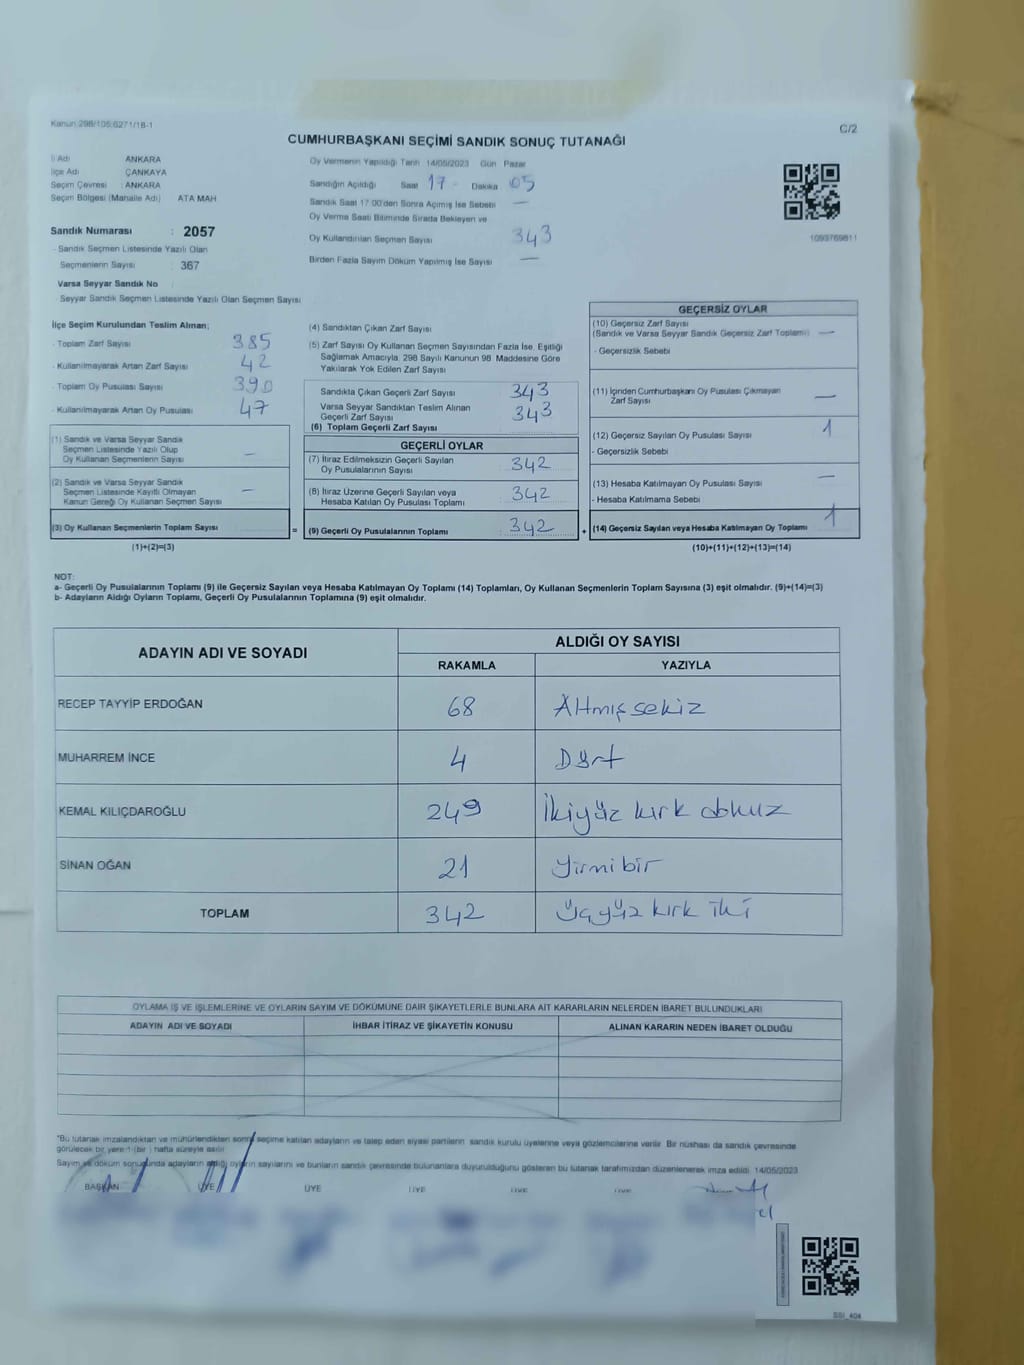 Kanun 298/105;6271/18-1
C/2
CUMHURBAŞKANI SEÇİMİ SANDIK SONUÇ TUTANAĞI
İl Adı ANKARA
İlçe Adı ÇANKAYA
Seçim Çevresi : ANKARA
Seçim Bölgesi (Mahalle Adı) ATA MAH
Sandık Numarası : 2057
- Sandık Seçmen Listesinde Yazılı Olan
Seçmenlerin Sayısı : 367
Varsa Seyyar Sandık No :
- Seyyar Sandık Seçmen Listesinde Yazılı Olan Seçmen Sayısı
Oy Vermenin Yapıldığı Tarih 14/05/2023 Gün Pazar
Sandığın Açıldığı Saat 17 Dakika 05
Sandık Saat 17:00'den Sonra Açılmış İse Sebebi —
Oy Verme Saati Bitiminde Sırada Bekleyen ve
Oy Kullandırılan Seçmen Sayısı 343
Birden Fazla Sayım Döküm Yapılmış İse Sayısı —
1093769811
İlçe Seçim Kurulundan Teslim Alınan;
- Toplam Zarf Sayısı 385
- Kullanılmayarak Artan Zarf Sayısı 42
- Toplam Oy Pusulası Sayısı 390
- Kullanılmayarak Artan Oy Pusulası 47
(1) Sandık ve Varsa Seyyar Sandık
Seçmen Listesinde Yazılı Olup
Oy Kullanan Seçmenlerin Sayısı —
(2) Sandık ve Varsa Seyyar Sandık
Seçmen Listesinde Kayıtlı Olmayan
Kanun Gereği Oy Kullanan Seçmen Sayısı —
(3) Oy Kullanan Seçmenlerin Toplam Sayısı
(1)+(2)=(3)
=
(4) Sandıktan Çıkan Zarf Sayısı
(5) Zarf Sayısı Oy Kullanan Seçmen Sayısından Fazla İse, Eşitliği
Sağlamak Amacıyla, 298 Sayılı Kanunun 98. Maddesine Göre
Yakılarak Yok Edilen Zarf Sayısı
Sandıkta Çıkan Geçerli Zarf Sayısı 343
Varsa Seyyar Sandıktan Teslim Alınan
Geçerli Zarf Sayısı 343
(6) Toplam Geçerli Zarf Sayısı
GEÇERLİ OYLAR
(7) İtiraz Edilmeksizin Geçerli Sayılan
Oy Pusulalarının Sayısı 342
(8) İtiraz Üzerine Geçerli Sayılan veya
Hesaba Katılan Oy Pusulası Toplamı 342
(9) Geçerli Oy Pusulalarının Toplamı 342
+
GEÇERSİZ OYLAR
(10) Geçersiz Zarf Sayısı
(Sandık ve Varsa Seyyar Sandık Geçersiz Zarf Toplamı) —
- Geçersizlik Sebebi
(11) İçinden Cumhurbaşkanı Oy Pusulası Çıkmayan
Zarf Sayısı —
(12) Geçersiz Sayılan Oy Pusulası Sayısı 1
- Geçersizlik Sebebi
(13) Hesaba Katılmayan Oy Pusulası Sayısı —
- Hesaba Katılmama Sebebi
(14) Geçersiz Sayılan veya Hesaba Katılmayan Oy Toplamı 1
(10)+(11)+(12)+(13)=(14)
NOT:
a- Geçerli Oy Pusulalarının Toplamı (9) ile Geçersiz Sayılan veya Hesaba Katılmayan Oy Toplamı (14) Toplamları, Oy Kullanan Seçmenlerin Toplam Sayısına (3) eşit olmalıdır. (9)+(14)=(3)
b- Adayların Aldığı Oyların Toplamı, Geçerli Oy Pusulalarının Toplamına (9) eşit olmalıdır.
ADAYIN ADI VE SOYADI ALDIĞI OY SAYISI
RAKAMLA YAZIYLA
RECEP TAYYİP ERDOĞAN 68 Altmış sekiz
MUHARREM İNCE 4 Dört
KEMAL KILIÇDAROĞLU 249 İkiyüz kırk dokuz
SİNAN OĞAN 21 Yirmi bir
TOPLAM 342 Üçyüz kırk iki
OYLAMA İŞ VE İŞLEMLERİNE VE OYLARIN SAYIM VE DÖKÜMÜNE DAİR ŞİKAYETLERLE BUNLARA AİT KARARLARIN NELERDEN İBARET BULUNDUKLARI
ADAYIN ADI VE SOYADI İHBAR İTİRAZ VE ŞİKAYETİN KONUSU ALINAN KARARIN NEDEN İBARET OLDUĞU
*Bu tutanak imzalandıktan ve mühürlendikten sonra seçime katılan adayların ve talep eden siyasi partilerin sandık kurulu üyelerine veya gözlemcilerine verilir. Bir nüshası da sandık çevresinde
görülecek bir yere 1 (bir) hafta süreyle asılır.
Sayım ve döküm sonucunda adayların aldığı oyların sayılarını ve bunların sandık çevresinde bulunanlara duyurulduğunu gösteren bu tutanak tarafımızdan düzenlenerek imza edildi. 14/05/2023
BAŞKAN ÜYE ÜYE ÜYE ÜYE ÜYE
SSI_404